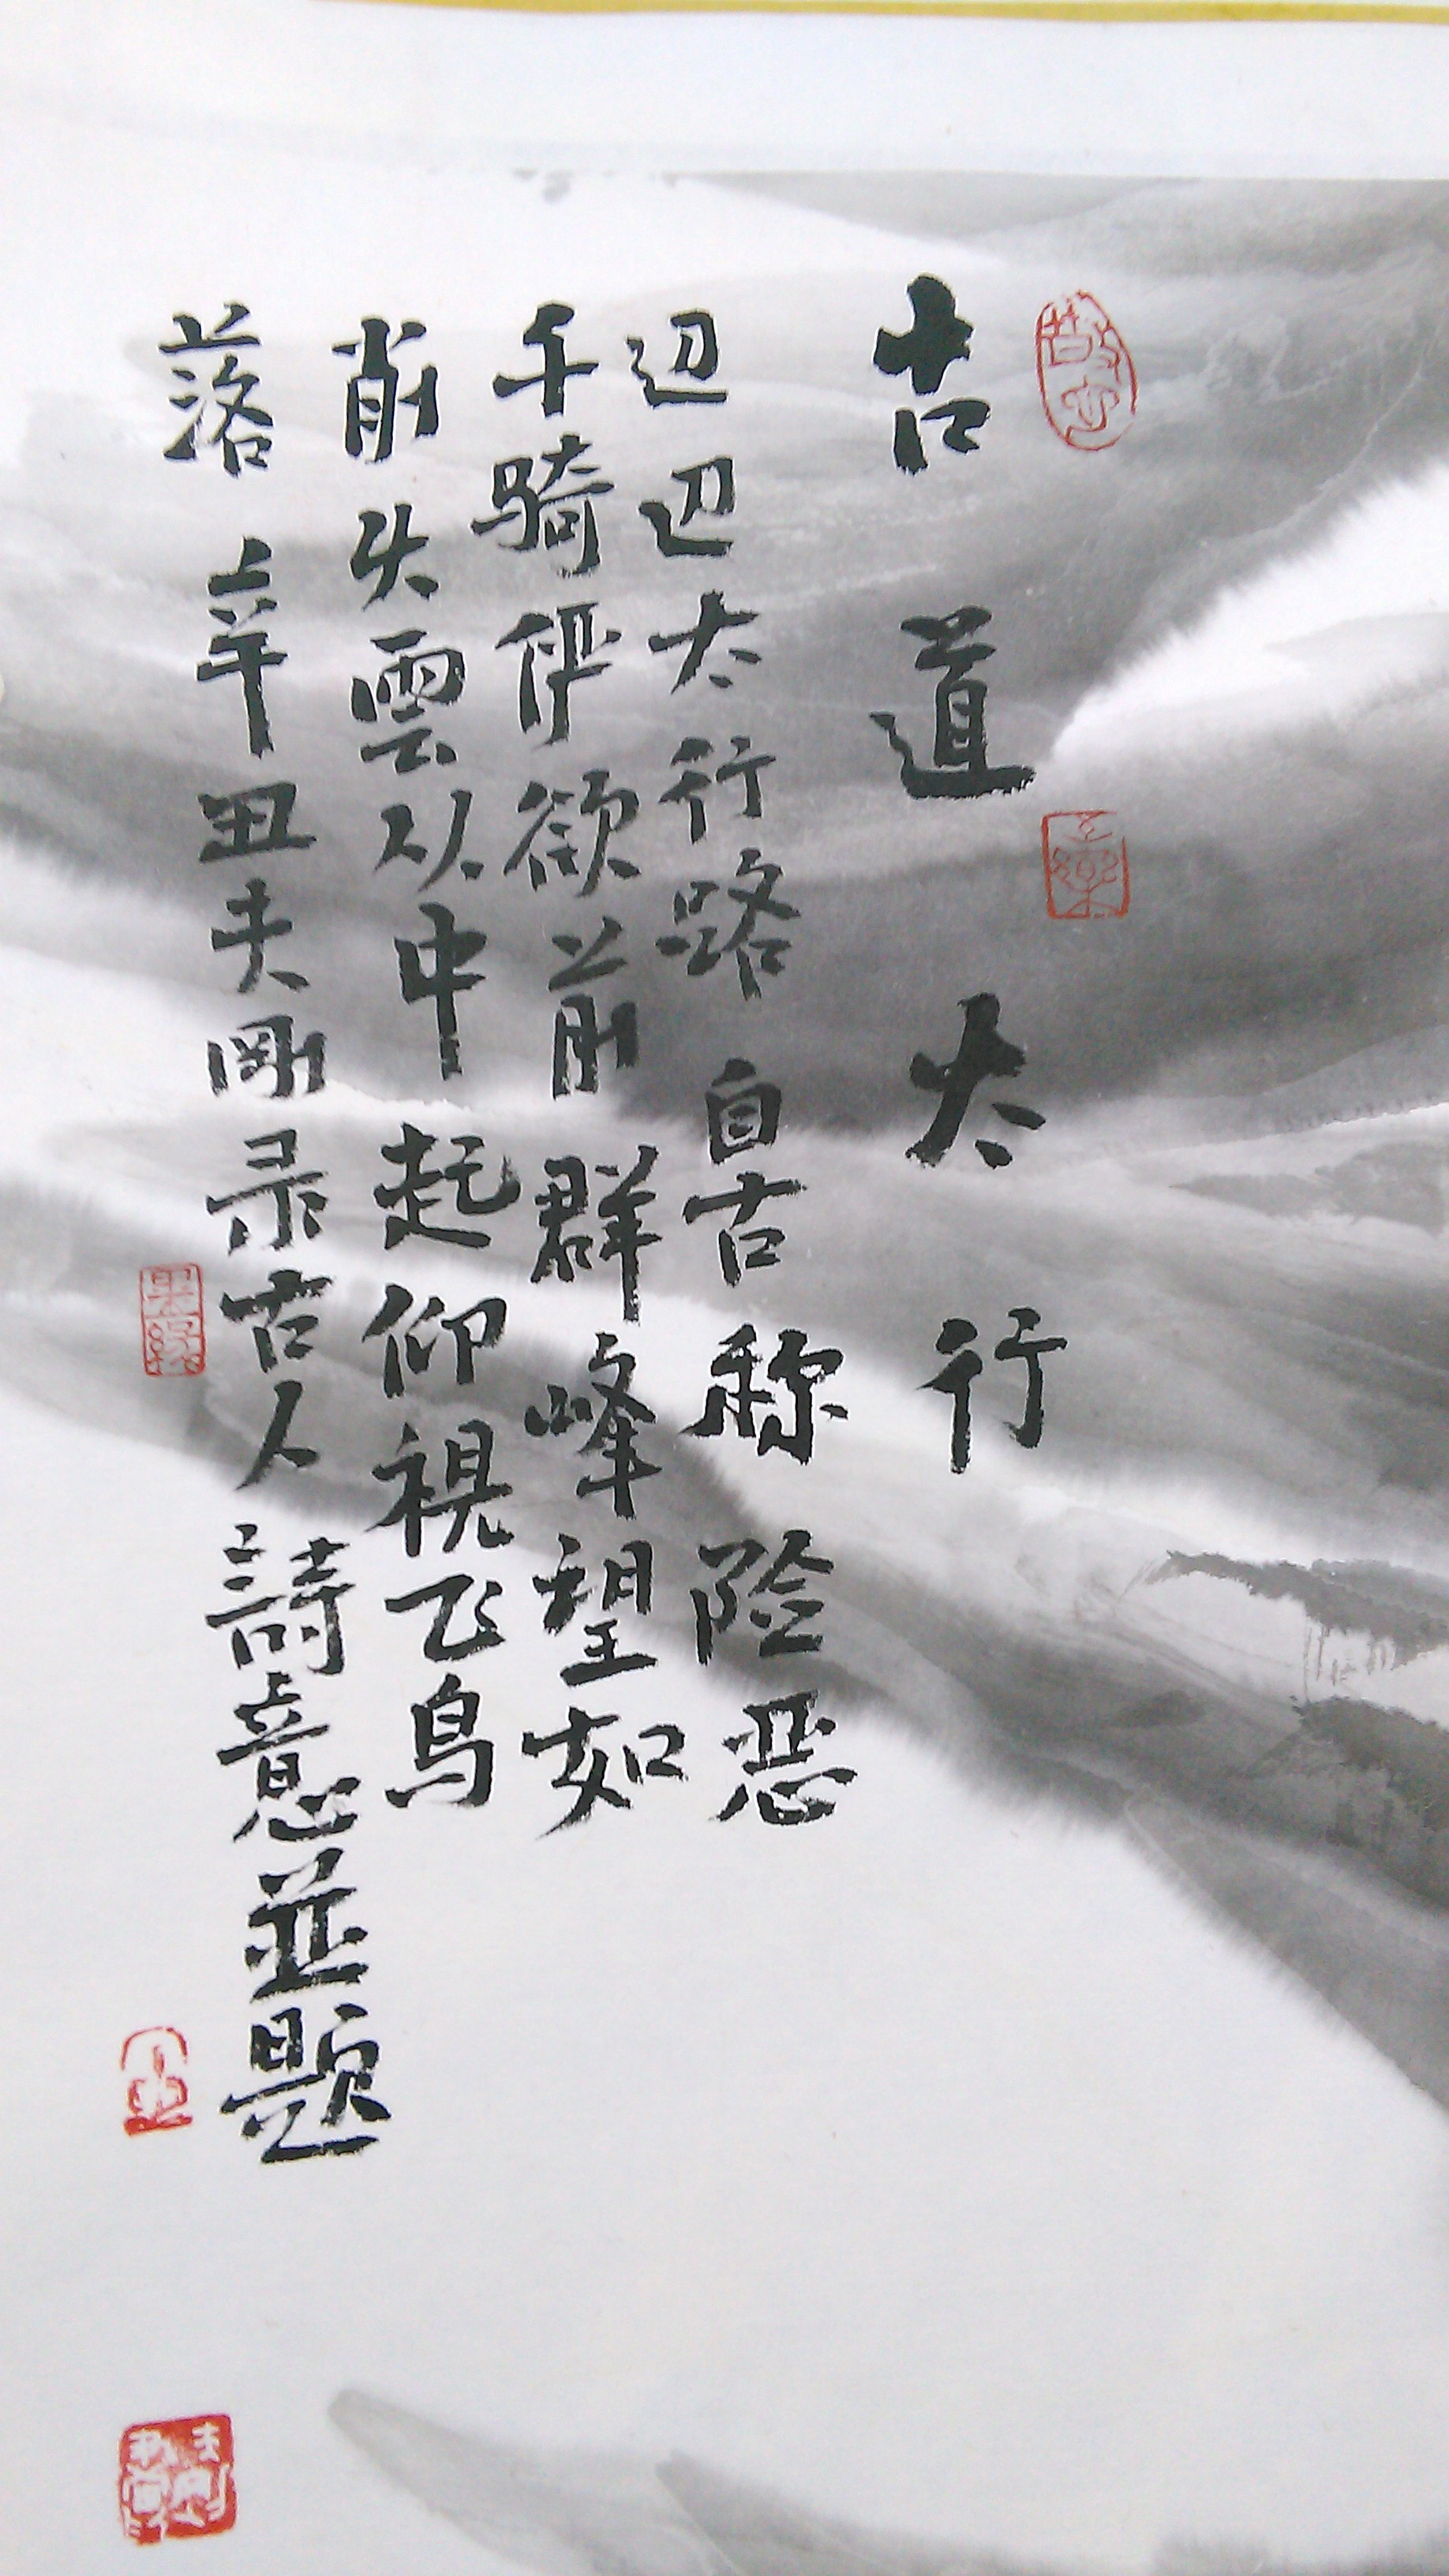 古道太行
迢迢太行路自古称险恶
千骑俨欲前群峰望如
削火雲从中起仰視飞鸟
落 辛丑夫剛录古人詩意並题